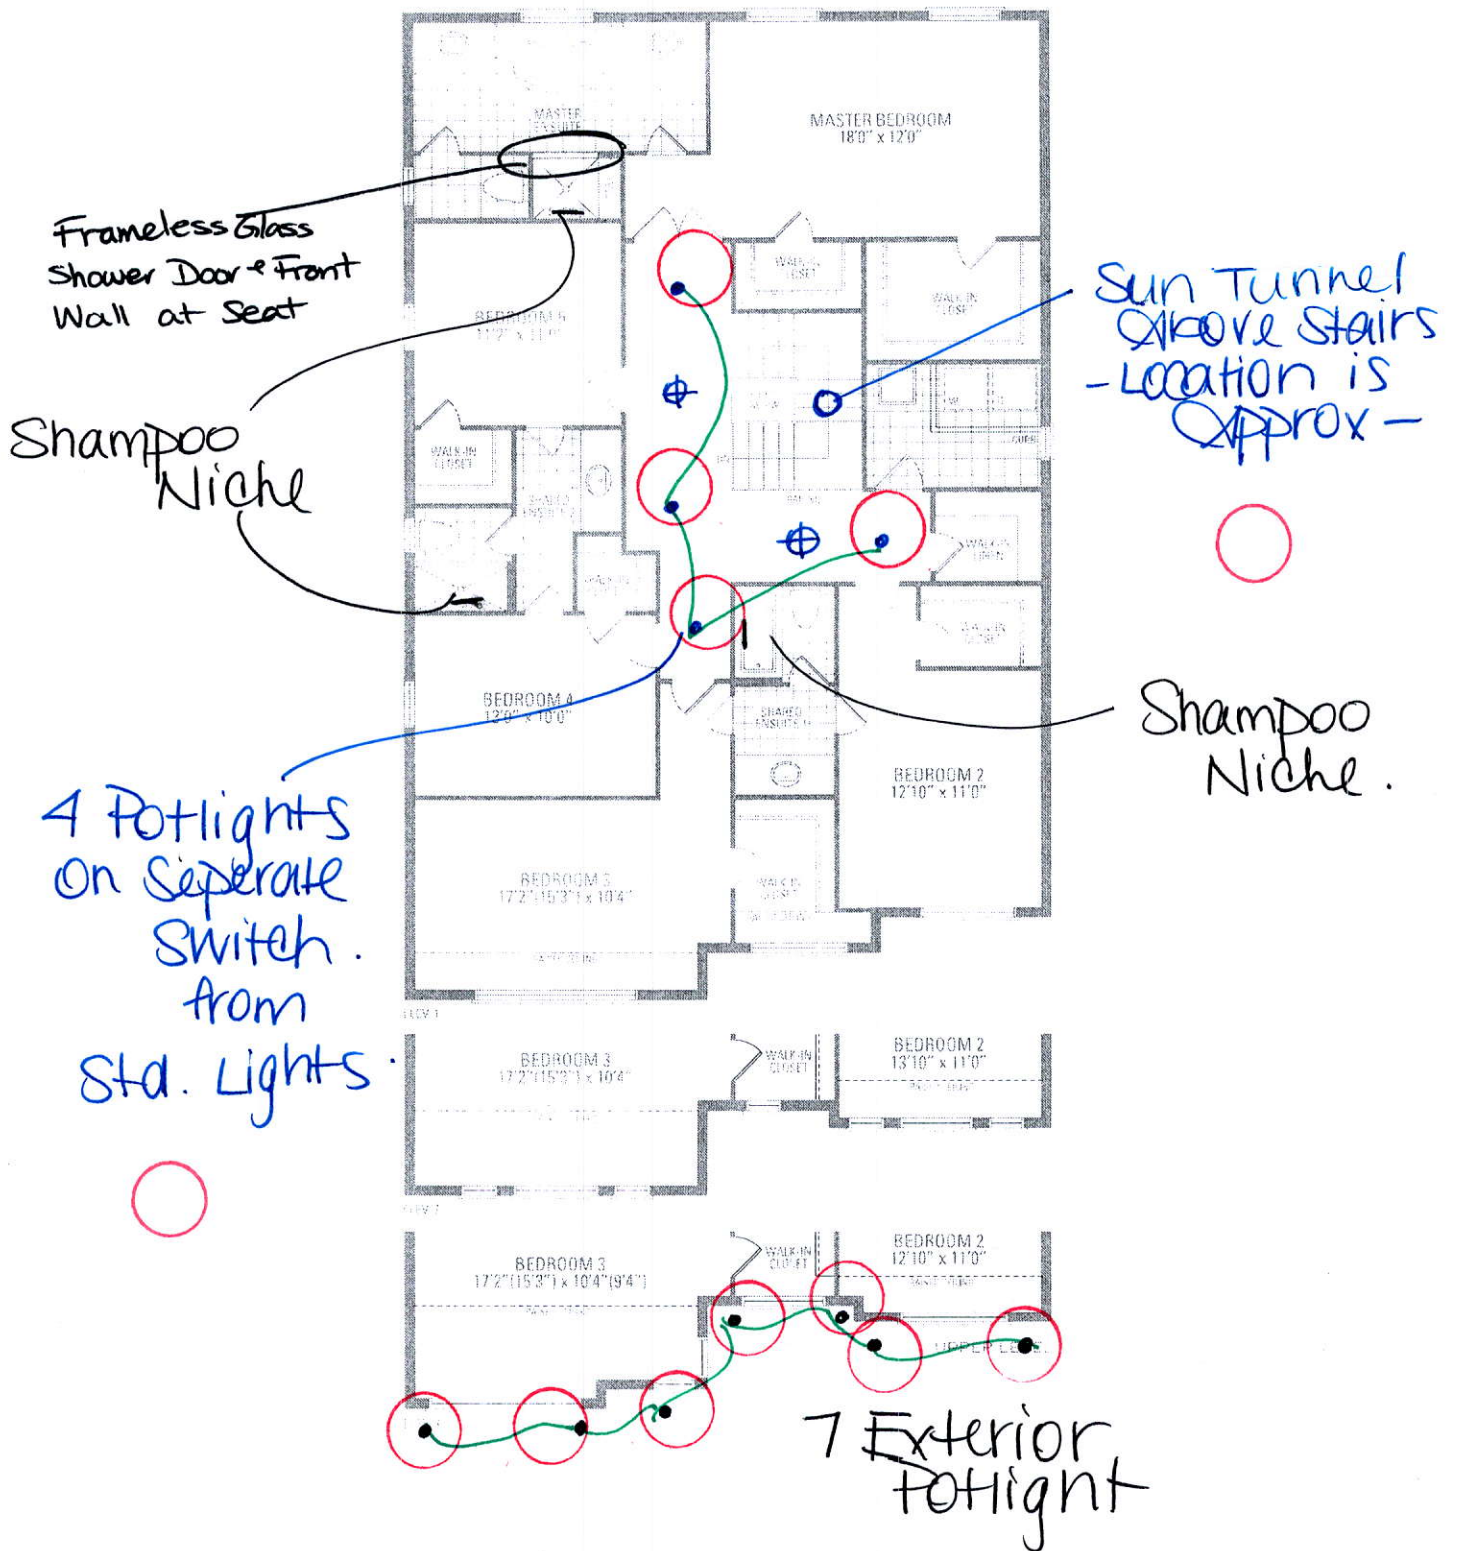 MASTER
ENSUITE
MASTER BEDROOM
18'0" x 12'0"
Frameless Glass
Shower Door & Front
Wall at Seat
WALK-IN
CLOSET
WALK-IN
Sun Tunnel
Above Stairs
- Location is
Approx -
BEDROOM 5
Shampoo
Niche
WALK-IN
CLOSET
SHARED
ENSUITE 2
WALK-IN
LINEN
WALK-IN
CLOSET
BEDROOM 4
12'0" x 10'0"
SHARED
ENSUITE 1
Shampoo
Niche.
4 Potlights
On Seperate
Switch.
from
Std. Lights.
BEDROOM 2
12'10" x 11'0"
BEDROOM 3
17'2"(15'3") x 10'4"
WALK-IN
CLOSET
ELEV 1
BEDROOM 3
17'2"(15'3") x 10'4"
WALK-IN
CLOSET
BEDROOM 2
13'10" x 11'0"
ELEV 2
BEDROOM 3
17'2"(15'3") x 10'4"(9'4")
WALK-IN
CLOSET
BEDROOM 2
12'10" x 11'0"
UPPER LEVEL
7 Exterior
Potlight